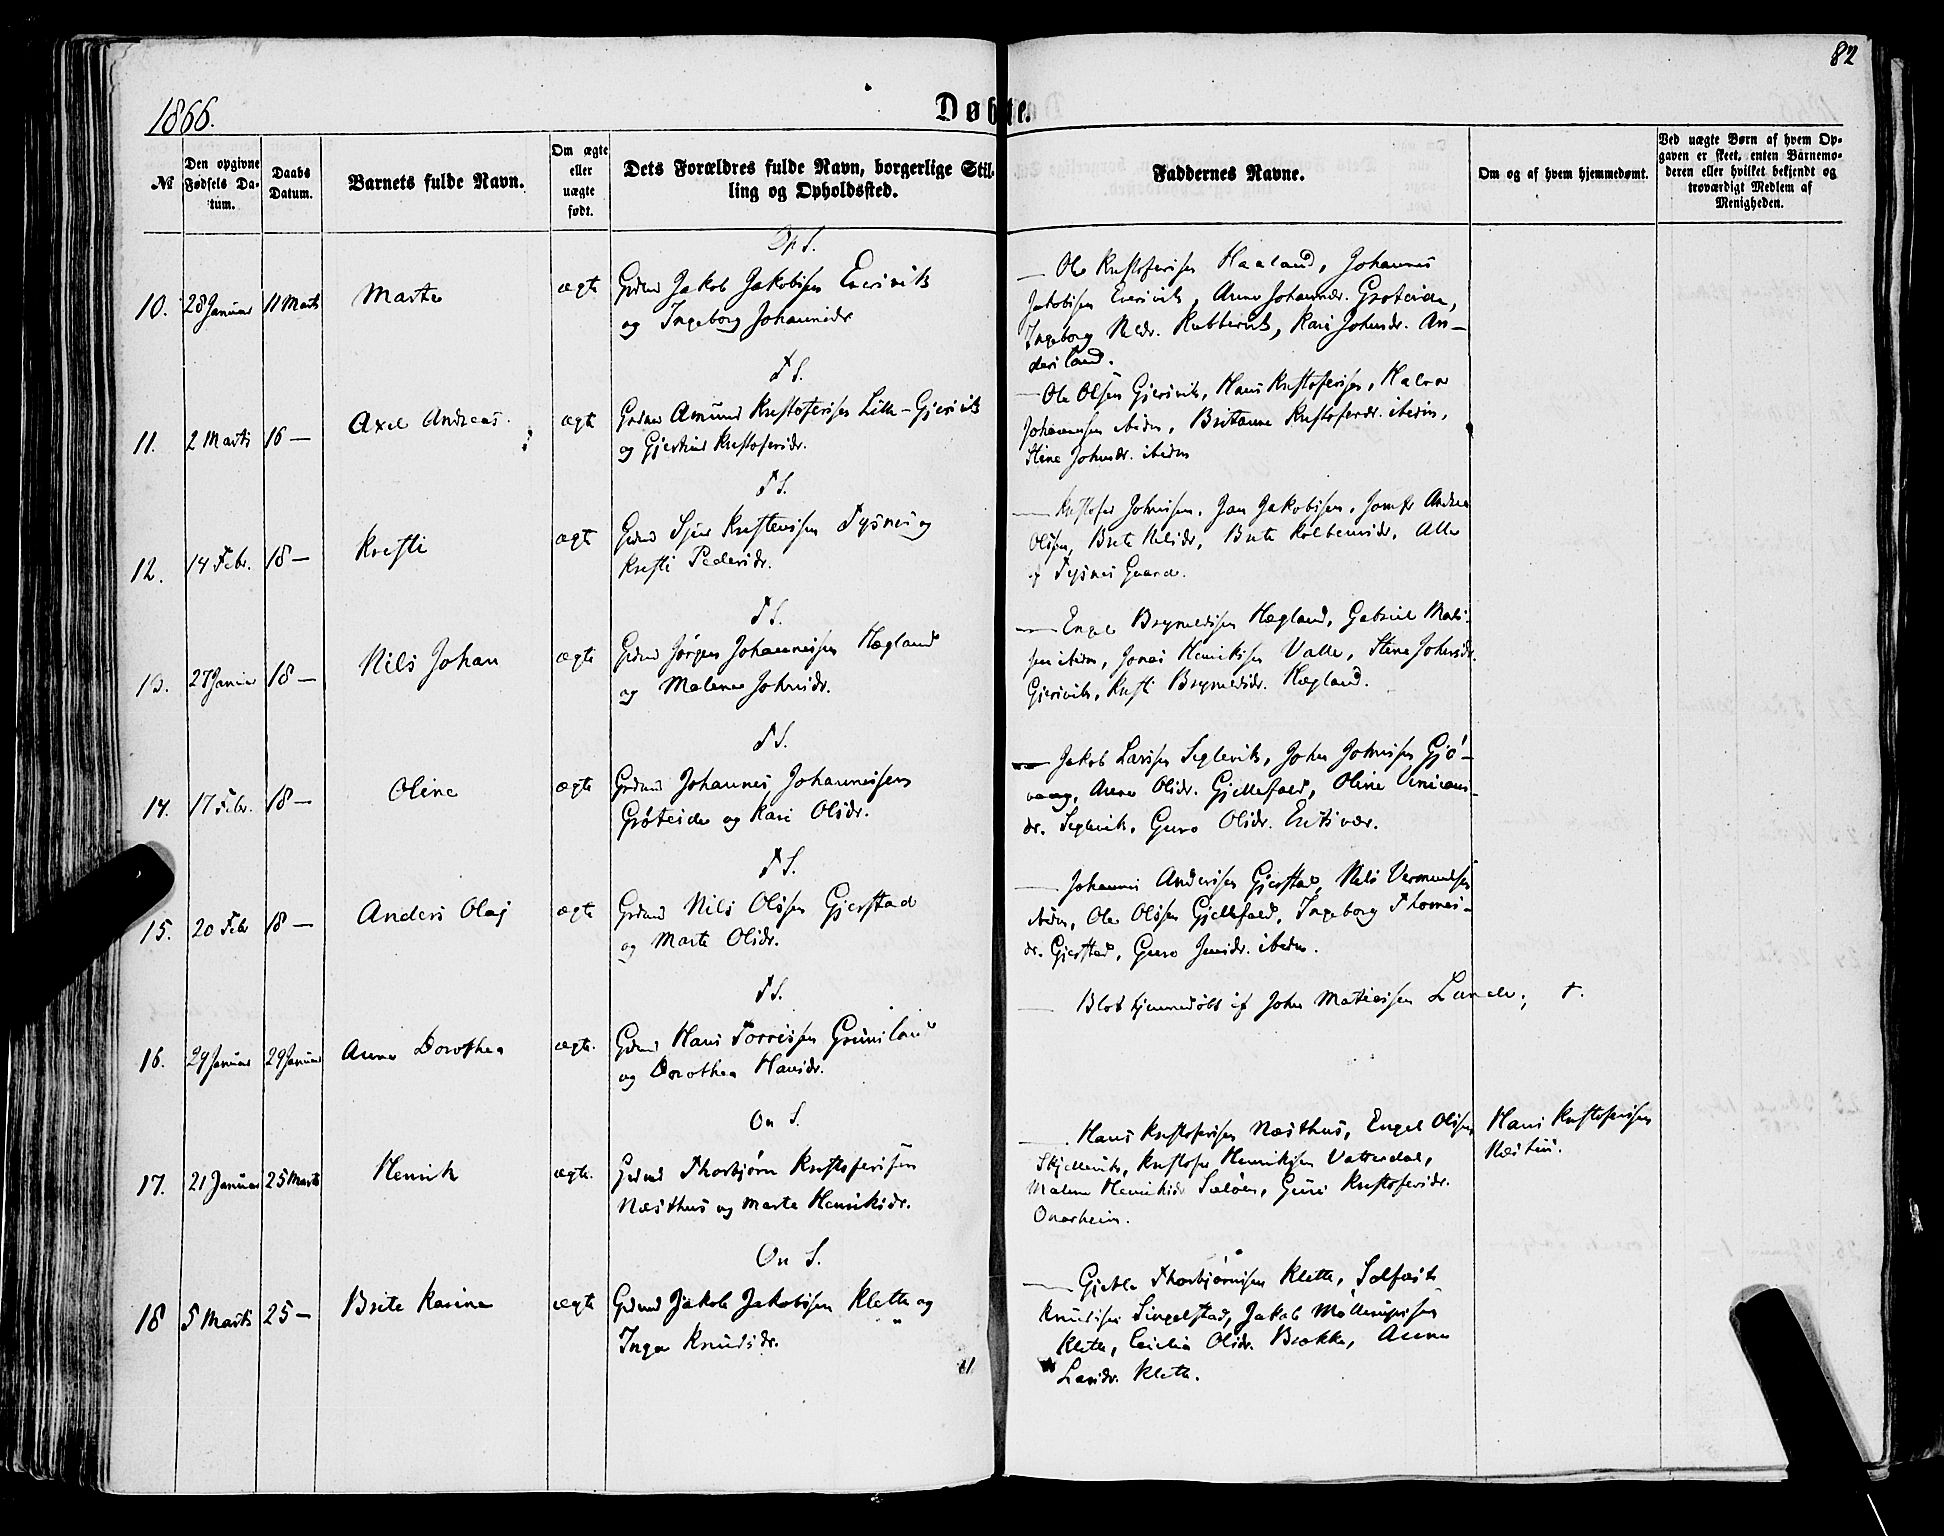 82
1866.
Døbte.
№
Den opgivne Fødsels Datum.
Daabs Datum.
Barnets fulde Navn.
Om ægte eller uægte født.
Dets Forældres fulde Navn, borgerlige Stilling og Opholdssted.
Faddernes Navne.
Om og af hvem hjemmedøbt.
Ved uægte Børn af hvem Opgaven er skeet, enten Barnemoderen eller hvilket bekjendt og troværdigt Medlem af Menigheden.
10. 28 Januar 11 Marts Marta ægte
Jakob Jakobsen Eversvik
og Ingeborg Johannisdr
— Ole Kristofersen Haaland, Johannes
Jakobsen Eversvik, Anna Johannesdr. Groteide,
Ingeborg Nilsdr. Kubbervik, Kari Johnsdr. An-
dersland.
T S.
11. 2 Marts 16 — Axel Andreas. ægte
Amund Kristofersen Litle-Gjersvik
og Gjertrud Kristofersdr.
— Ole Olsen Gjersvik, Hans Kristofersen, Halvor
Johannessen ibidm, Britanna Kristofersdr. ibidm,
Stine Johnsdr. ibidm
T S.
12. 14 Febr. 18 — Kristi ægte
Sjur Kristensen Tysnes og
Kristi Pedersdr.
— Kristofer Johnsen, Jan Jakobsen, Andrea
Olsen, Brita Nilsdr, Brita Kolbensdr, Alle
af Tysnes Gaard.
T S.
13. 27 Januar 18 — Nils Johan ægte
Jørgen Johannessen Hægland
og Malena Johnsdr.
— Engel Brynildsen Hægland, Gabriel Mads-
sen ibidm, Jonas Henriksen Valle, Stina Johnsdr.
Gjersvik, Kristi Brynildsdr. Hægland.
T S.
14. 17 Febr. 18 — Oline ægte
Johannes Johannessen
Grøteide og Kari Olsdr.
— Jakob Larsen Seglevik, John Johnsen Gjø-
vaag, Anna Olsdr. Gjellefald,
dr. Seglevik, Guro Olsdr.
T S.
15. 20 Febr 18 — Anders Olaj ægte
Nils Olsen Gjerstad
og Marta Olsdr.
— Johannes Andersen Gjerstad, Nils Vermundsen
ibidm, Ole Olsen Gjellefald, Ingeborg Thomas-
dr. Gjerstad, Guro Jensdr. ibidm.
T S.
16. 29 Januar 29 Januar Anna Dorothea ægte.
Hans
og Dorothea Hansdr.
— Blot hjemmedøbt af John Mathiesen Lande; †.
On S.
17. 21 Januar 25 Marts Henrik ægte.
Thorbjørn Kristofersen
Næsthus og Marta Henriksdr.
— Hans Kristofersen Næsthus, Engel Olsen
Skjellevik, Kristofer Henriksen Vatnedal,
Malene Henriksdr Seløen, Guri Kristofersdr.
Onarheim.
Hans Kristofersen
Næsthus.
On S.
18 5 Marts 25 — Brita Karina ægte
Jakob Jakobsen Klette og
Inga Knudsdr.
— Gjetle Thorbjørnsen Klette, Solfæst
Knudsen Singelstad, Jakob
Klette, Cecilia Olsdr. Brække, Anna
Larsdr. Klette.